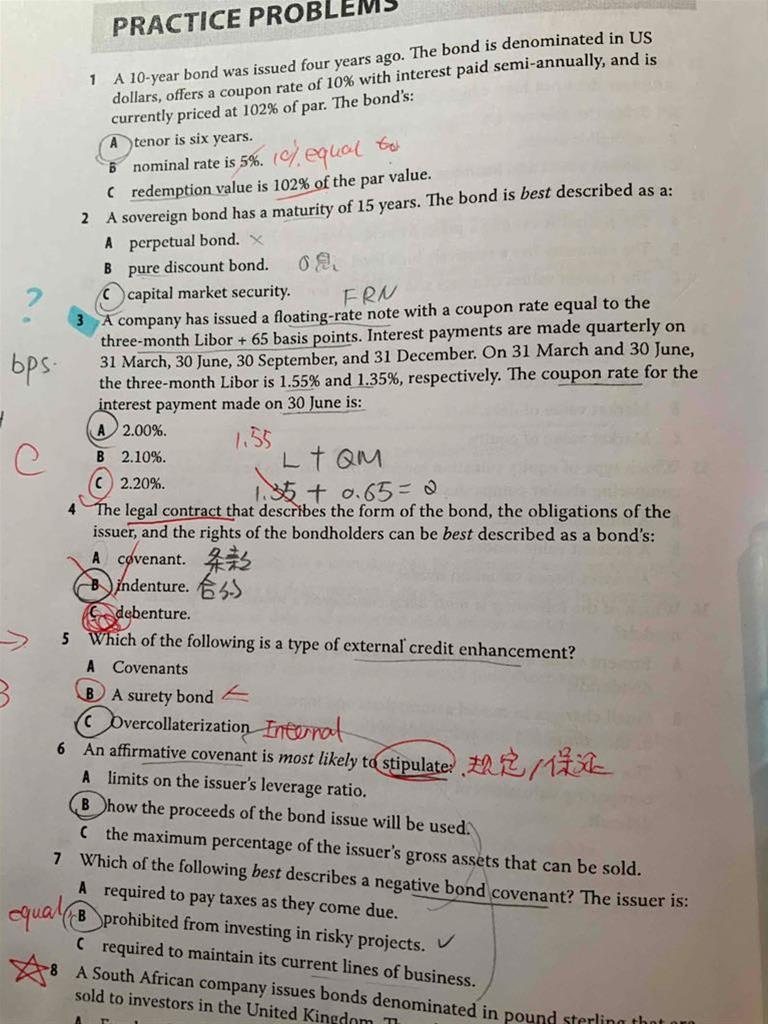 PRACTICE PROBLEMS
1 A 10-year bond was issued four years ago. The bond is denominated in US
dollars, offers a coupon rate of 10% with interest paid semi-annually, and is
currently priced at 102% of par. The bond's:
A tenor is six years.
B nominal rate is 5%. 10% equal to
C redemption value is 102% of the par value.
2 A sovereign bond has a maturity of 15 years. The bond is best described as a:
A perpetual bond. ×
B pure discount bond. 0息
C capital market security.
FRN
?
3 A company has issued a floating-rate note with a coupon rate equal to the
three-month Libor + 65 basis points. Interest payments are made quarterly on
bps.
31 March, 30 June, 30 September, and 31 December. On 31 March and 30 June,
the three-month Libor is 1.55% and 1.35%, respectively. The coupon rate for the
interest payment made on 30 June is:
A 2.00%.
1.55
C
B 2.10%. L + QM
C 2.20%. 1.35 + 0.65 = 2
4 The legal contract that describes the form of the bond, the obligations of the
issuer, and the rights of the bondholders can be best described as a bond's:
A covenant. 条款
B indenture. 合约
C debenture.
→ 5 Which of the following is a type of external credit enhancement?
A Covenants
B A surety bond ←
C Overcollaterization Internal
6 An affirmative covenant is most likely to stipulate: 规定/保证
A limits on the issuer's leverage ratio.
B how the proceeds of the bond issue will be used.
C the maximum percentage of the issuer's gross assets that can be sold.
7 Which of the following best describes a negative bond covenant? The issuer is:
A required to pay taxes as they come due.
equal B prohibited from investing in risky projects. ✓
C required to maintain its current lines of business.
8 A South African company issues bonds denominated in pound sterling that are
sold to investors in the United Kingdom.